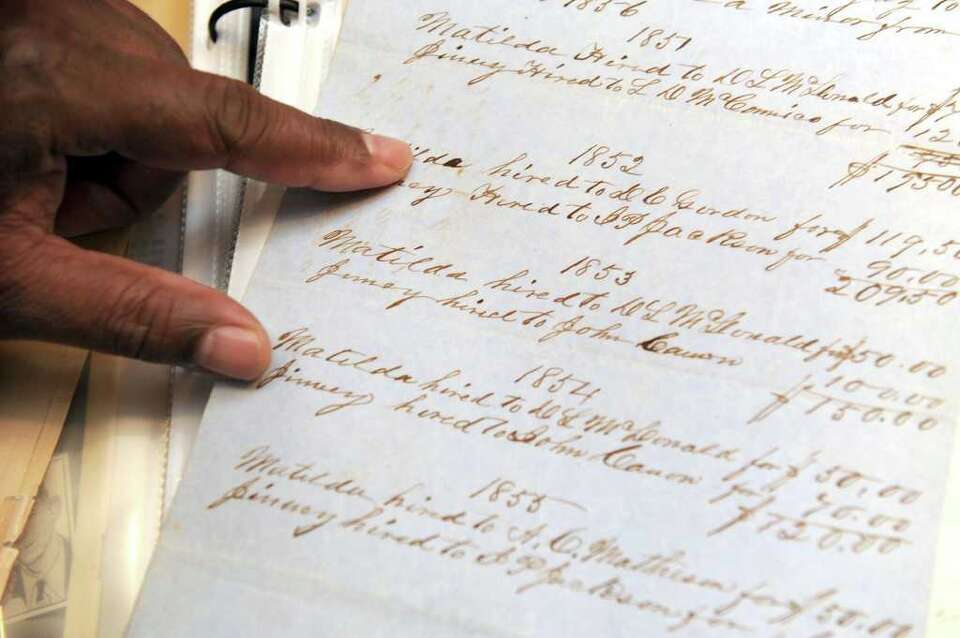 1856 a Minor from
1851
Matilda Hired to D L McDonald for $
Jinney Hired to L D McComico for 120
$195.00
1852
ilda hired to D C Gordon for $119,50
ney Hired to S P Jackson for 90.00
209,50
1853
Matilda hired to D L McDonald for $50.00
Jinney hired to John Cauon 100.00
$150.00
1854
Matilda hired to D L McDonald for $50,00
Jinney hired to John Cauon for 70.00
$120.00
1855
Matilda hired to A. C. Mathison for $50.00
Jinney hired to S P Jackson for